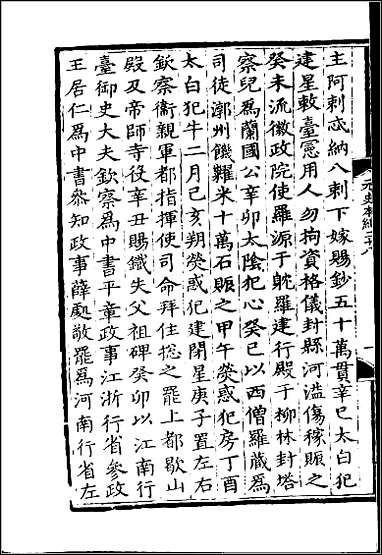 主阿剌忒納八剌下嫁賜鈔五十萬貫辛巳太白犯
建星敕臺憲用人勿拘資格儀封縣河溢傷稼賑之
癸未流徽政院使羅源于躭羅建行殿于柳林封塔
察兒爲蘭國公辛卯太陰犯心癸巳以西僧羅蔵爲
司徒漷州饑糶米十萬石賑之甲午熒惑犯房丁酉
太白犯牛二月己亥朔熒惑犯建閉星庚子置左右
欽察衞親軍都指揮使司命拜住揔之罷上都歇山
殿及帝師寺役辛丑賜鐵失父祖碑癸卯以江南行
臺御史大夫欽察爲中書平章政事江浙行省參政
王居仁爲中書參知政事薛處敬罷爲河南行省左
元史本紀二十八